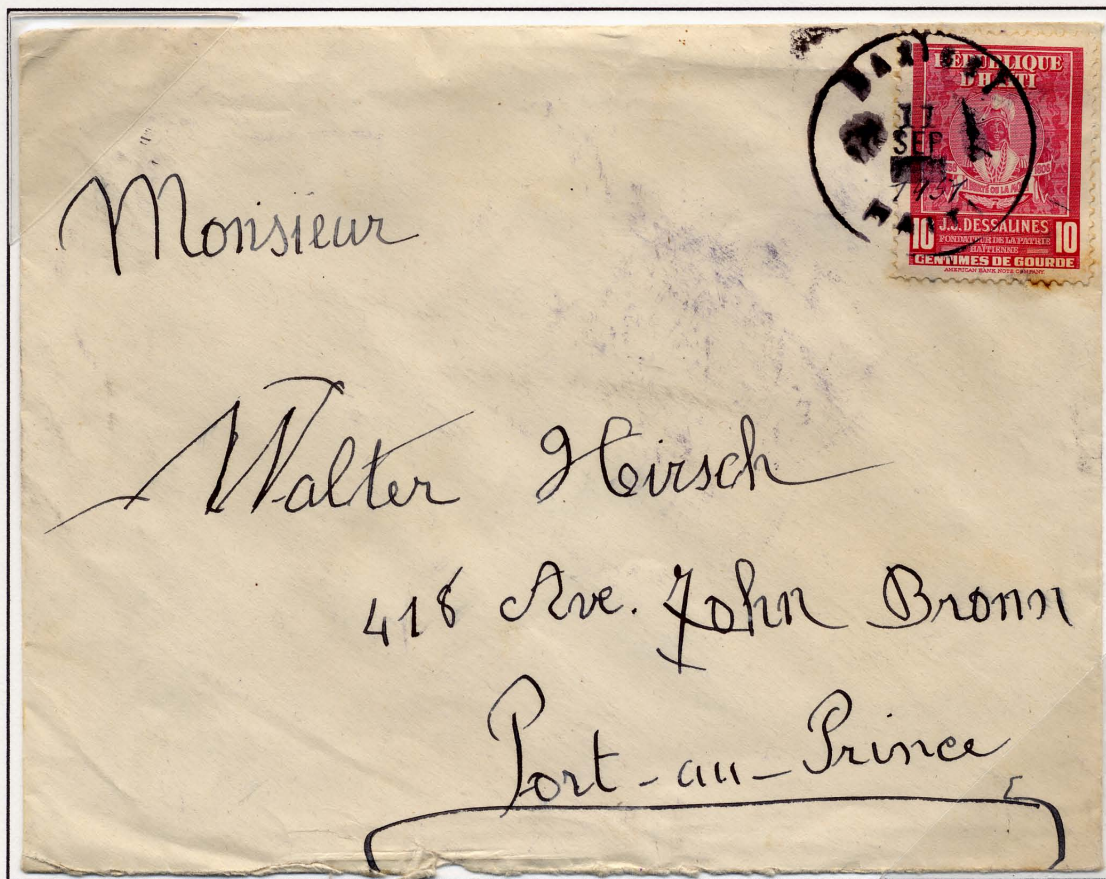 RÉPUBLIQUE
D'HAITI
11
SEP
1951
1806
LIBERTÉ OU LA
J.J. DESSALINES
10 FONDATEUR DE LA PATRIE 10
HAÏTIENNE
CENTIMES DE GOURDE
AMERICAN BANK NOTE COMPANY
Monsieur
Walter Hirsch
418 Ave. John Bronn
Port-au-Prince